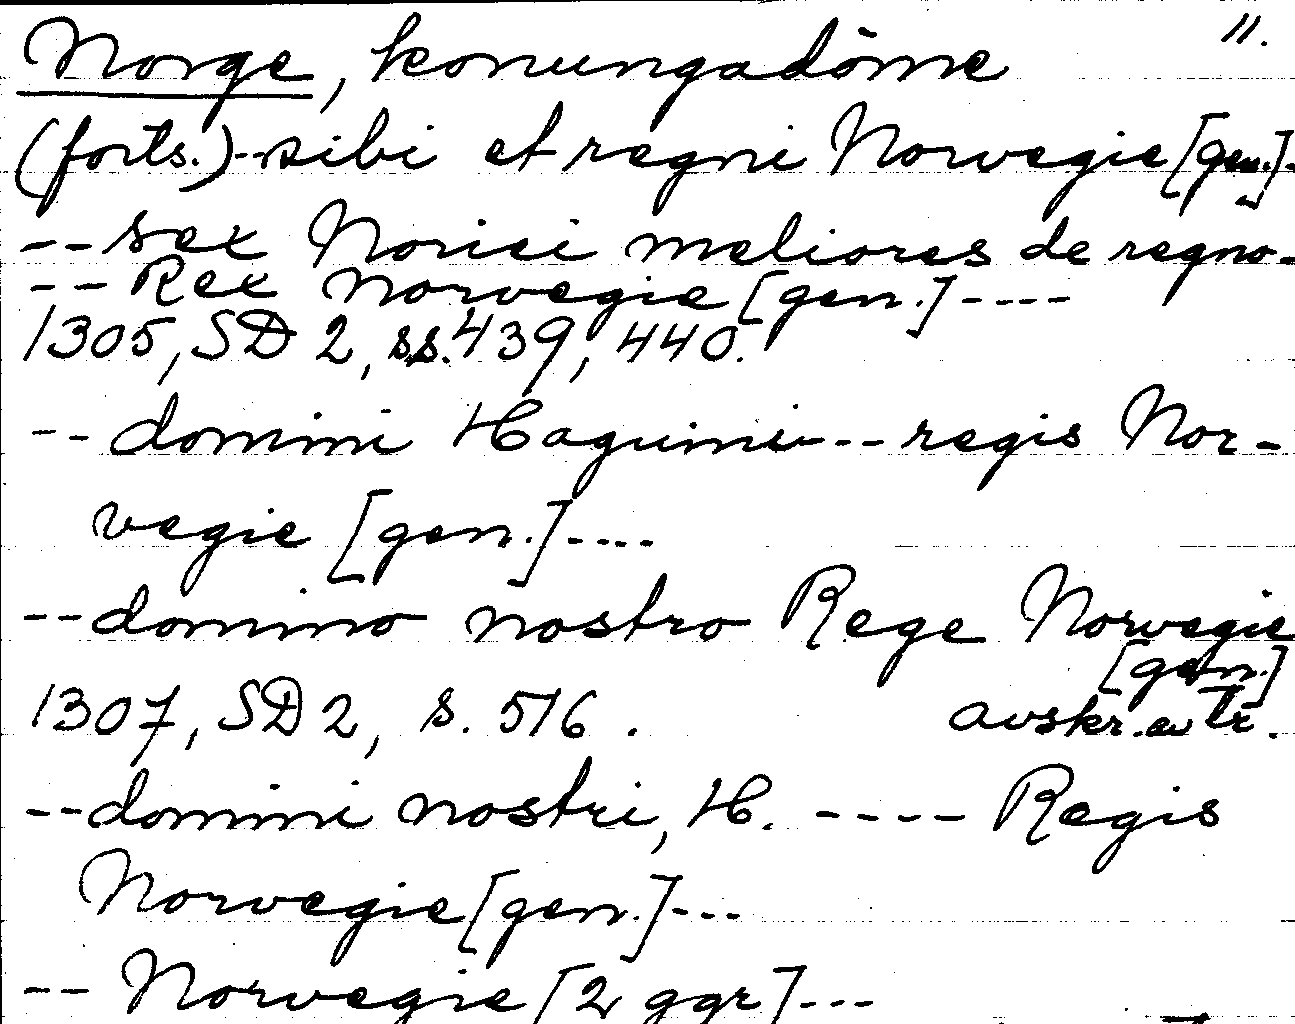 11.
Norge, konungadöme
(forts.)--sibi et regni Norvegie [gen.]-
--sex Norici meliores de regno-
--Rex Norvegie [gen.]----
1305, SD 2, ss. 439, 440.
--domini Haquini---regis Nor-
vegie [gen.]----
--domino nostro Rege Norwegie
[gen.]
1307, SD 2, s. 516. avskr. av tr.
--domini nostri, H. ---- Regis
Norvegie [gen.]---
-- Norwegie [2 ggr]---